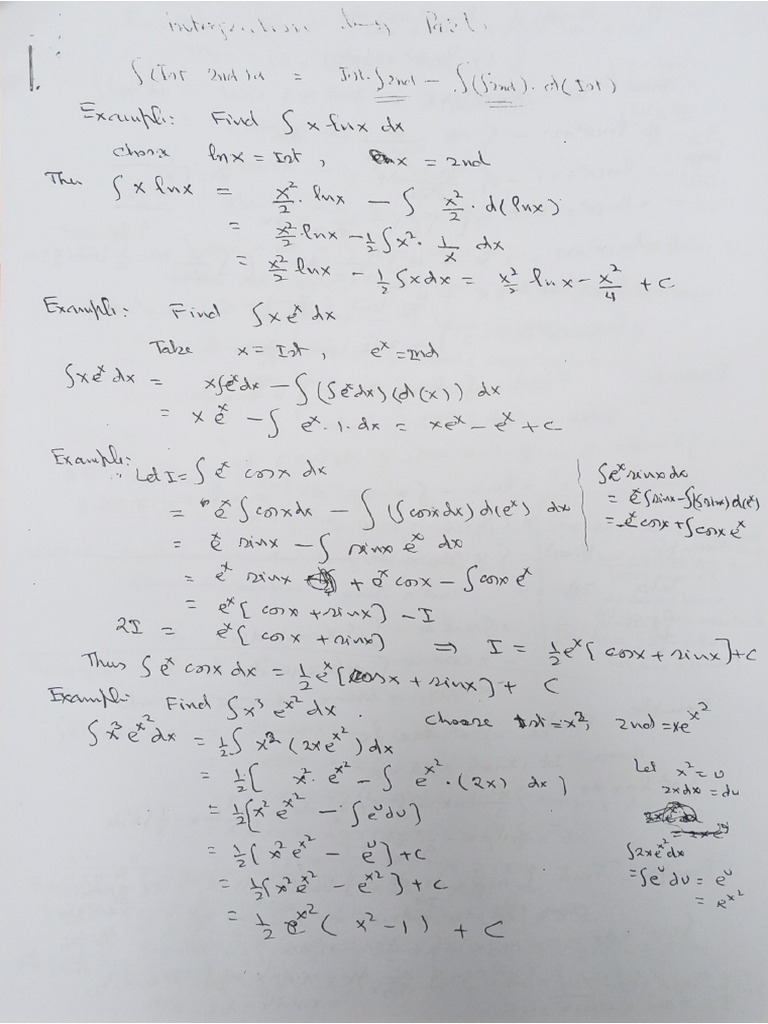 integration by Parts
1.
∫(Ist 2nd) dx = Ist·∫2nd − ∫(∫2nd)·d(Ist)
Example: Find ∫ x lnx dx
choose lnx = Ist, x = 2nd
Then ∫ x lnx = x²/2 · lnx − ∫ x²/2 · d(lnx)
= x²/2 · lnx − 1/2 ∫ x² · 1/x dx
= x²/2 lnx − 1/2 ∫ x dx = x²/2 lnx − x²/4 + C
Example: Find ∫ x eˣ dx
Take x = Ist, eˣ = 2nd
∫ x eˣ dx = x∫eˣdx − ∫(∫eˣdx)(d(x)) dx
= x eˣ − ∫ eˣ · 1 · dx = xeˣ − eˣ + C
Example:
Let I = ∫ eˣ cosx dx
= eˣ ∫ cosx dx − ∫ (∫cosx dx) d(eˣ) dx
= eˣ sinx − ∫ sinx eˣ dx
= eˣ sinx + eˣ cosx − ∫ cosx eˣ
= eˣ [ cosx + sinx ] − I
2I = eˣ [ cosx + sinx ] ⇒ I = 1/2 eˣ [ cosx + sinx ] + C
∫eˣ sinx dx
= eˣ ∫sinx − ∫(∫sinx) d(eˣ)
= −eˣ cosx + ∫cosx eˣ
Thus ∫ eˣ cosx dx = 1/2 eˣ [cosx + sinx] + C
Example: Find ∫ x³ e^(x²) dx. choose Ist = x², 2nd = x e^(x²)
∫ x³ e^(x²) dx = 1/2 ∫ x² (2x e^(x²)) dx
= 1/2 [ x² · e^(x²) − ∫ e^(x²) · (2x) dx ]
= 1/2 [ x² e^(x²) − ∫ eᵘ du ]
= 1/2 [ x² e^(x²) − eᵘ ] + C
= 1/2 [ x² e^(x²) − e^(x²) ] + C
= 1/2 e^(x²) ( x² − 1 ) + C
Let x² = u
2x dx = du
∫2x e^(x²) dx
= ∫eᵘ du = eᵘ
= e^(x²)